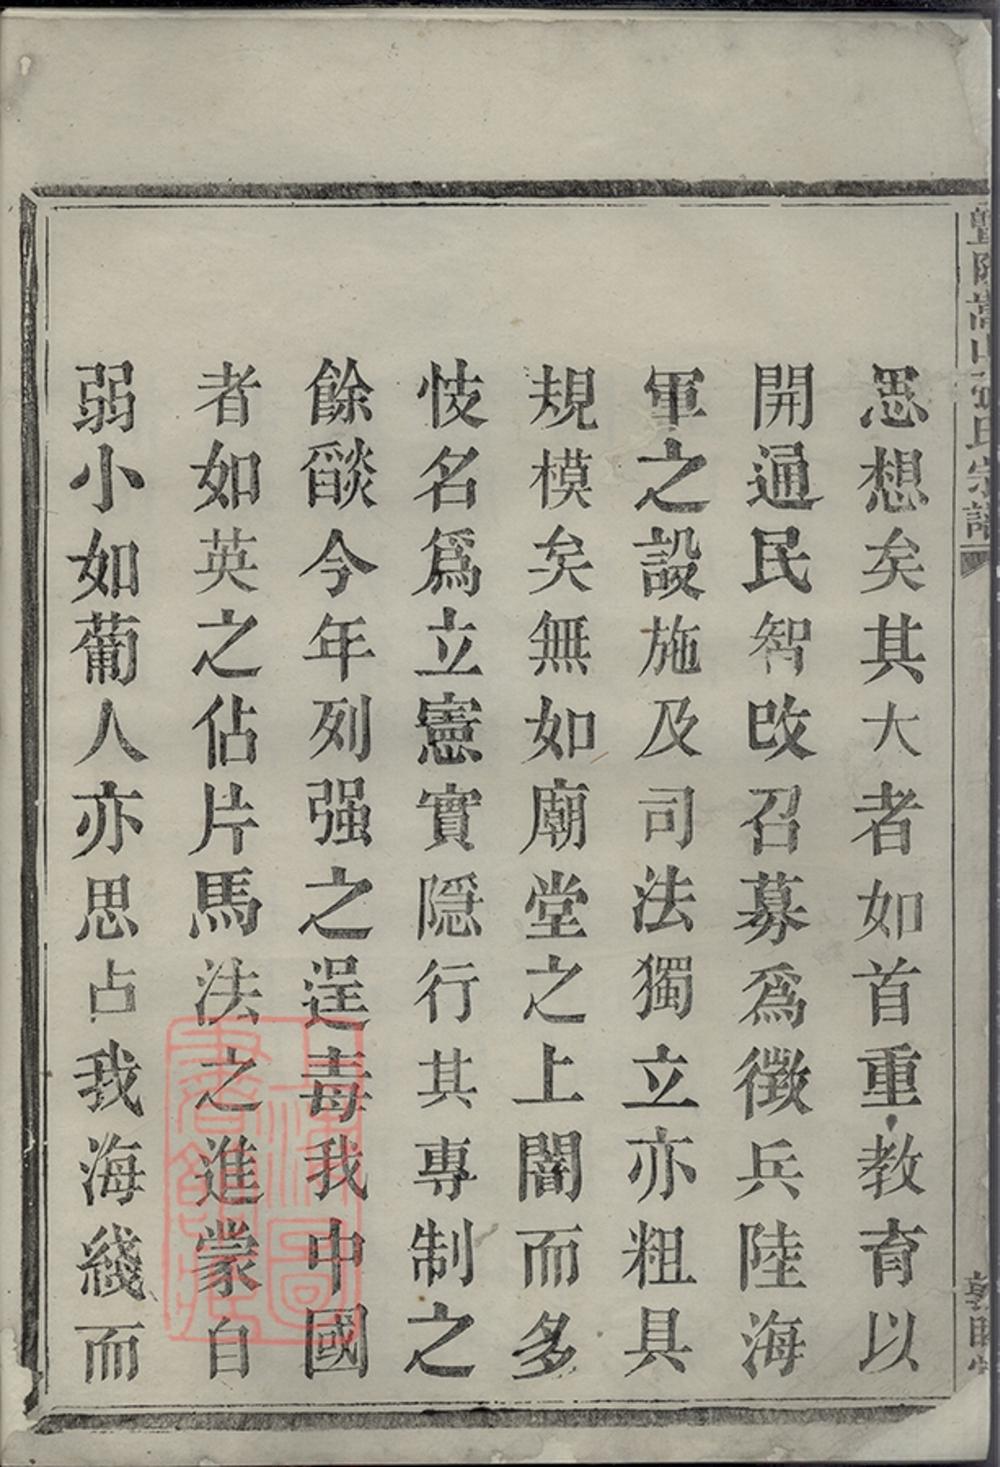 暨陽嵩山張氏宗譜
思想矣其大者如首重教育以
開通民智改召募爲徵兵陸海
軍之設施及司法獨立亦粗具
規模矣無如廟堂之上闇而多
忮名爲立憲實隱行其專制之
餘燄今年列强之逞毒我中國
者如英之佔片馬法之進蒙自
弱小如葡人亦思占我海綫而
上海圖
書館藏